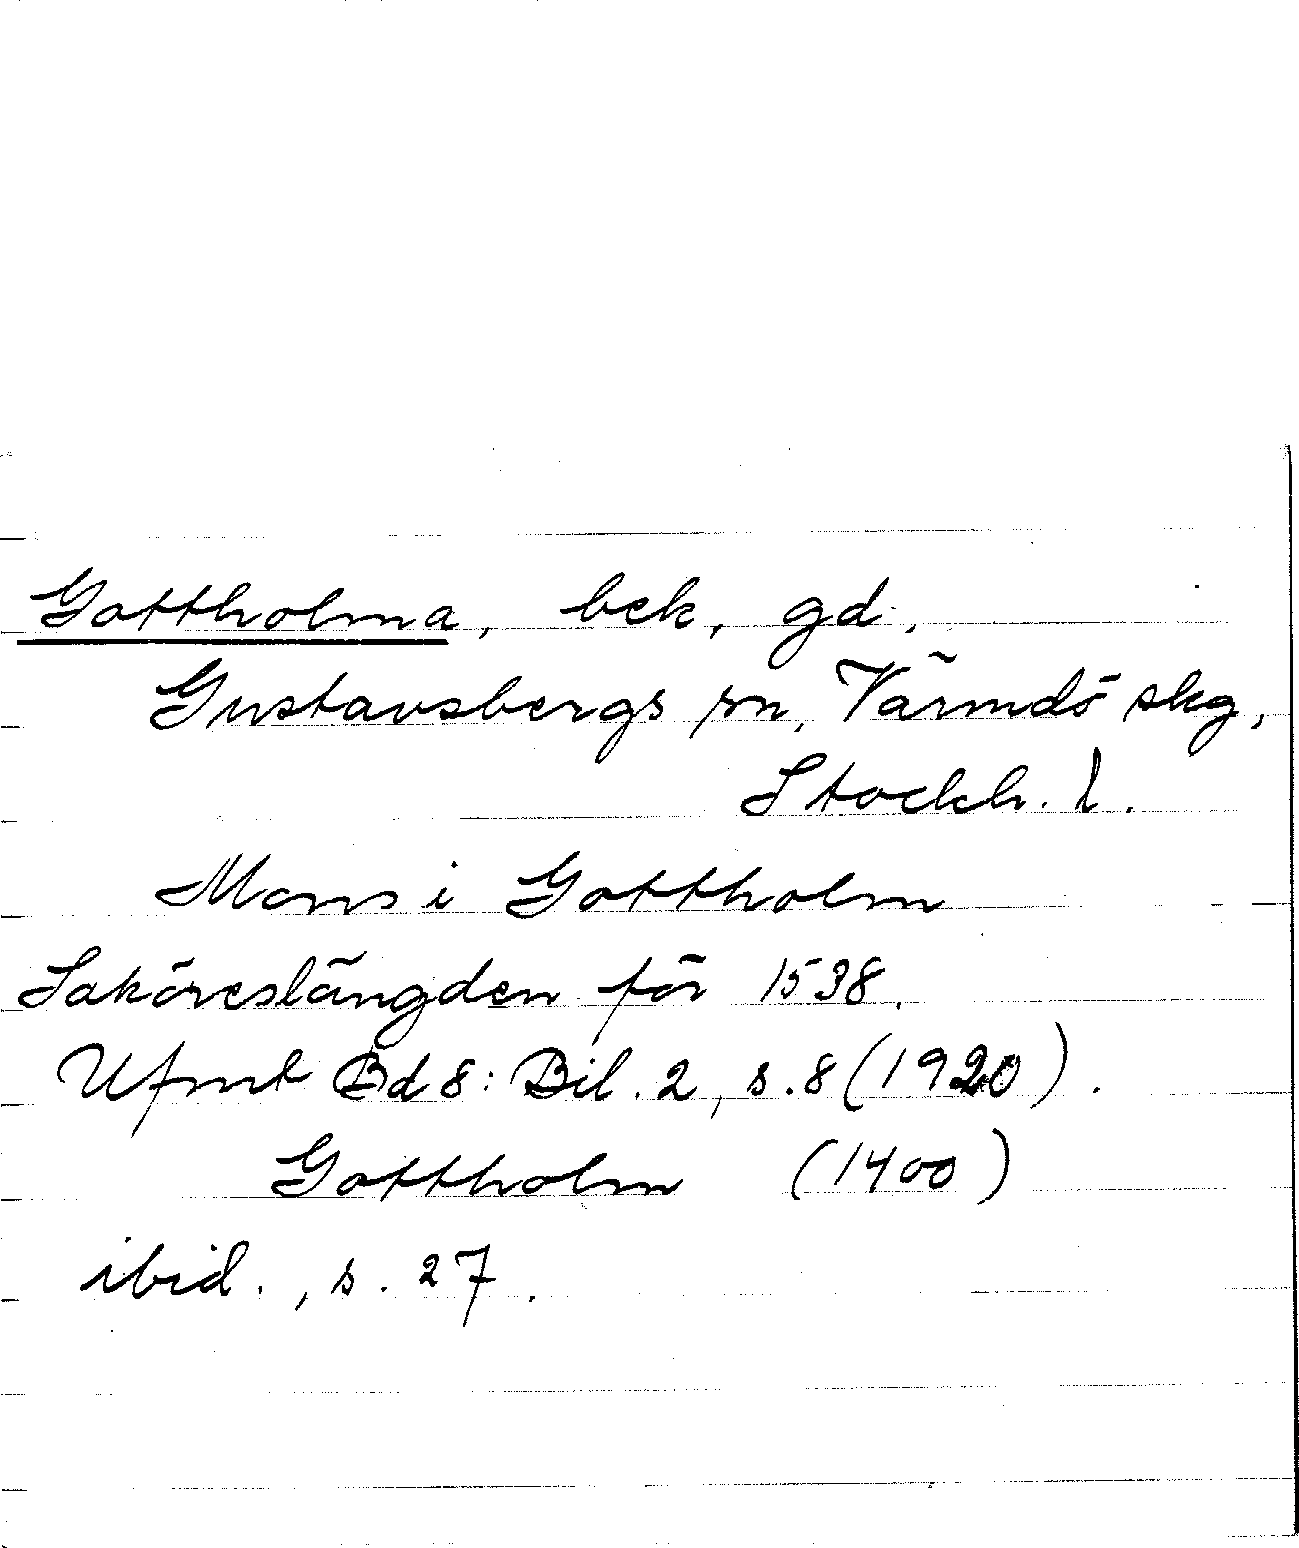 Gottholma, bek, gd,
Gustavsbergs sn, Värmdö skg,
Stockh. l.
Mons i Gottholm
Saköreslängden för 1538.
Ufmt Bd 8: Bil. 2, s. 8 (1920).
Gottholm (1400)
ibid., s. 27.